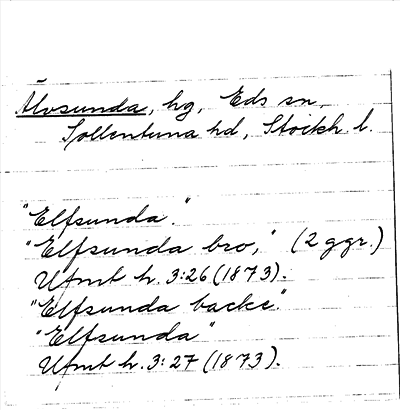 Älvsunda, hg, Eds sn,
Sollentuna hd, Stockh. l.
"Elfsunda."
"Elfsunda bro," (2 ggr.)
Ufmt h. 3:26 (1873).
"Elfsunda backe"
"Elfsunda"
Ufmt h. 3:27 (1873).